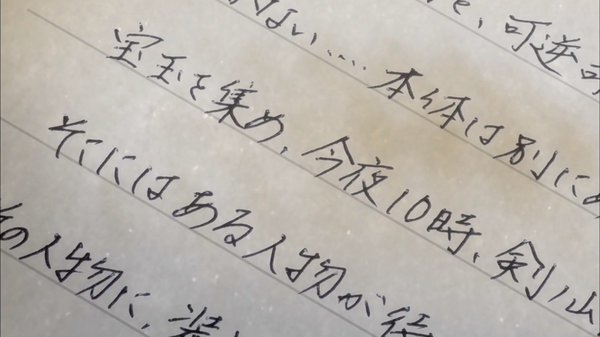 、可逆
ない.... 本体は別にあ
宝玉を集め、今夜10時、剣山
そこにはある人物が待
の人物に、装